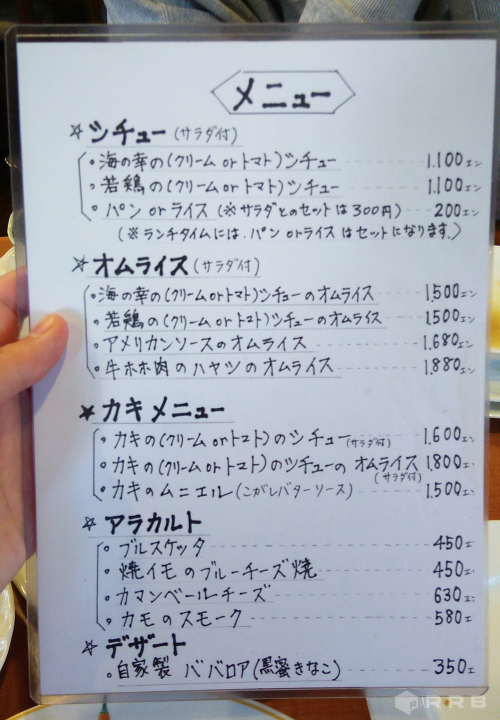 メニュー
☆シチュー(サラダ付)
・海の幸の(クリームorトマト)シチュー 1.100エン
・若鶏の(クリームorトマト)シチュー 1.100エン
・パンorライス(※サラダとのセットは300円) 200エン
(※ランチタイムには、パンorライスはセットになります。)
☆オムライス(サラダ付)
・海の幸の(クリームorトマト)シチューのオムライス 1.500エン
・若鶏の(クリームorトマト)シチューのオムライス 1.500エン
・アメリカンソースのオムライス 1.680エン
・牛ホホ肉のハヤシのオムライス 1.880エン
★カキメニュー
・カキの(クリームorトマト)のシチュー(サラダ付) 1.600エン
・カキの(クリームorトマト)のシチューのオムライス 1.800エン
(サラダ付)
・カキのムニエル(こがしバターソース) 1.500エン
☆アラカルト
・ブルスケッタ 450エ
・焼イモのブルーチーズ焼 450エ
・カマンベールチーズ 630エ
・カモのスモーク 580エ
☆デザート
・自家製 ババロア(黒蜜きなこ) 350エ
RRB